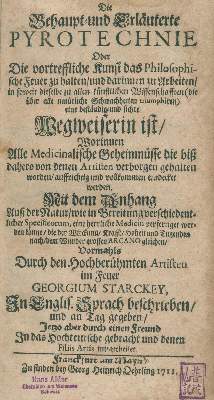 Die
Behaupt und Erläuterte
PYROTECHNIE
Oder
Die vortreffliche Kunst das Philosophi-
sche Feuer zu halten/und darinnen zu Arbeiten/
in soweit dieselbe zu allen künstlichen Wissenschafften/die
über alle natürliche Schwachheiten triumphiren/
eine beständig und sichre
Wegweiserin ist/
Worinnen
Alle Medicinalische Geheimnüsse die biß
dahero von denen Artisten verborgen gehalten
worden/ auffrichtig und vollkommen entdecket
werden.
Mit dem Anhang
Auß der Natur/wie in Bereitung verschiedent-
licher Specificorum, eine herrliche Medicin verfertiget wer-
den könne/ die der Würckung/ Krafft/ Arbeit und Tugend
nach/dem Wunder grossen ARCANO gleichen/
Vormahls
Durch den Hochberühmten Artisten
im Feuer
GEORGIUM STARCKEY,
In Englis. Sprach beschrieben/
und an Tag gegeben/
Jetzo aber durch einen Freund
In das Hochteutsche gebracht und denen
Filiis Artis mitgetheilet.
Franckfurt am Mayn/
Zu finden bey Georg Heinrich Oehrling 1711.